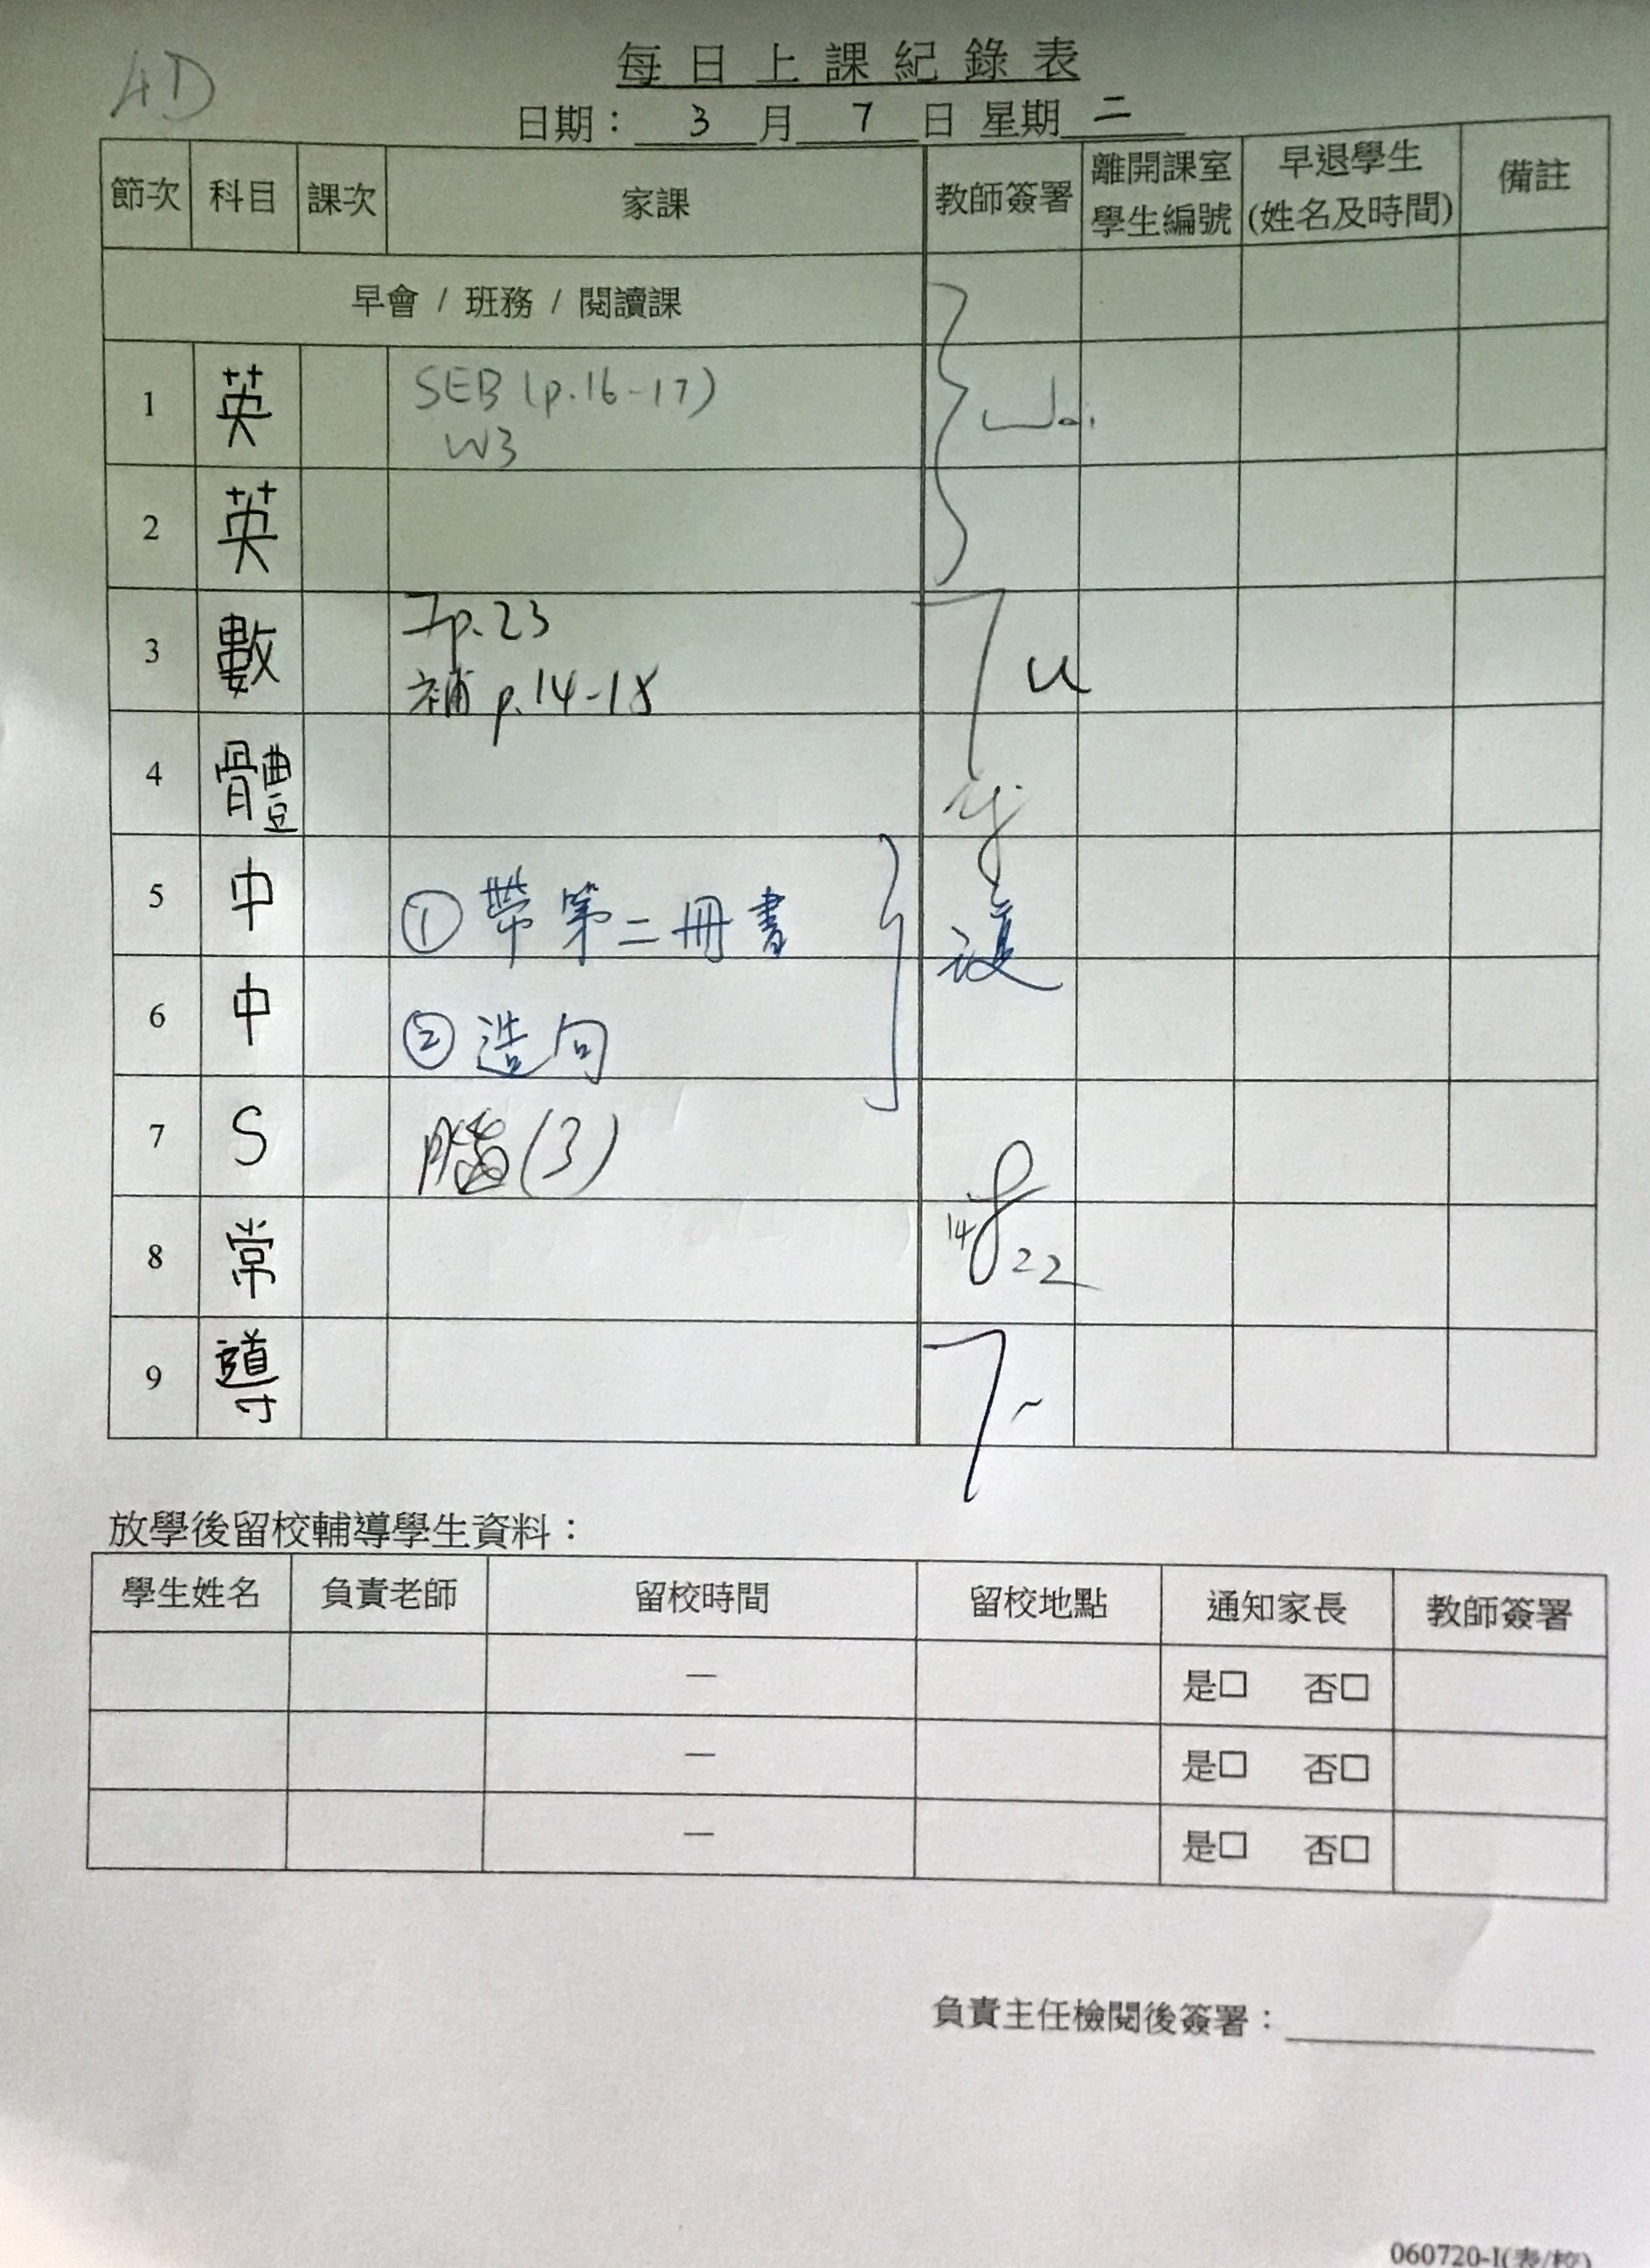 4D
每日上課紀錄表
日期： 3 月 7 日 星期 二
節次 科目 課次 家課 教師簽署 離開課室學生編號 早退學生(姓名及時間) 備註
早會 / 班務 / 閱讀課
1 英 SEB (p.16-17)
W3
2 英
3 數 p.23
補 p.14-18
4 體
5 中 ① 帶第二冊書
6 中 ② 造句
7 S 腦(3)
8 常
9 導
放學後留校輔導學生資料：
學生姓名 負責老師 留校時間 留校地點 通知家長 教師簽署
— 是□ 否□
— 是□ 否□
— 是□ 否□
負責主任檢閱後簽署：
060720-I(表/校)